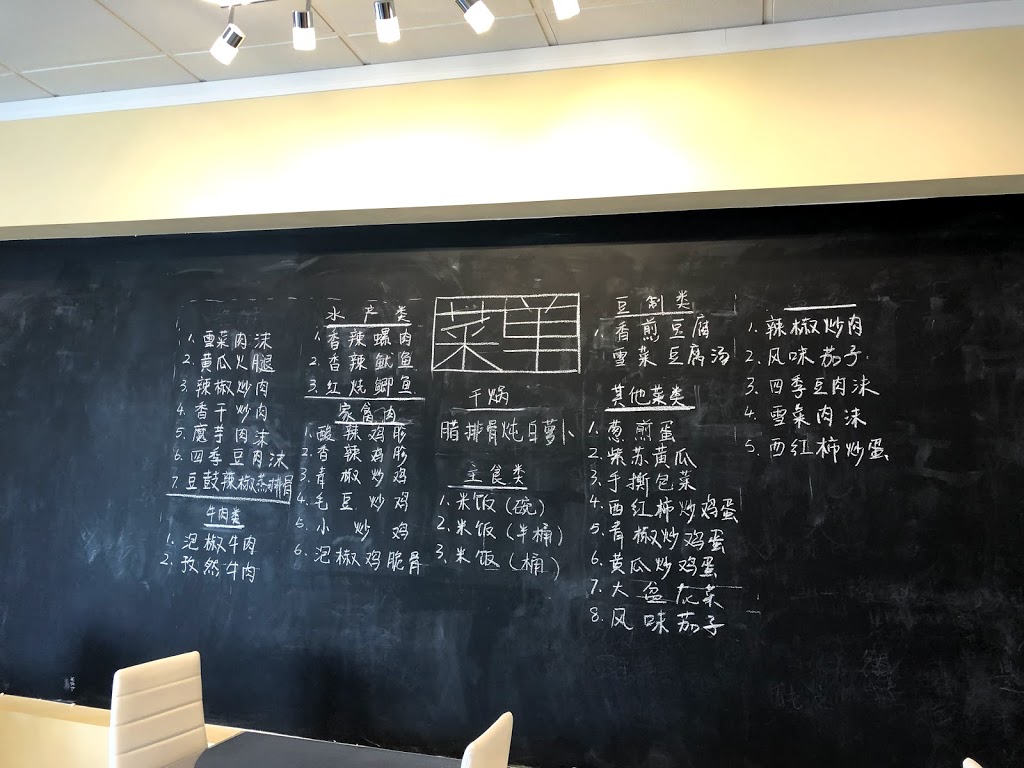 1. 雪菜肉沫
2. 黄瓜火腿
3. 辣椒炒肉
4. 香干炒肉
5. 魔芋肉沫
6. 四季豆肉沫
7. 豆鼓辣椒蒸排骨
牛肉类
1. 泡椒牛肉
2. 孜然牛肉
水产类
1. 香辣螺肉
2. 香辣鱿鱼
3. 红烧鲫鱼
家禽肉
1. 酸辣鸡胗
2. 香辣鸡胗
3. 青椒炒鸡
4. 毛豆炒鸡
5. 小炒鸡
6. 泡椒鸡脆骨
菜单
干锅
腊排骨炖白萝卜
主食类
1. 米饭(碗)
2. 米饭(半桶)
3. 米饭(桶)
豆制类
香煎豆腐
雪菜豆腐汤
其他菜类
1. 葱煎蛋
2. 紫苏黄瓜
3. 手撕包菜
4. 西红柿炒鸡蛋
5. 青椒炒鸡蛋
6. 黄瓜炒鸡蛋
7. 大盆花菜
8. 风味茄子
1. 辣椒炒肉
2. 风味茄子
3. 四季豆肉沫
4. 雪菜肉沫
5. 西红柿炒蛋